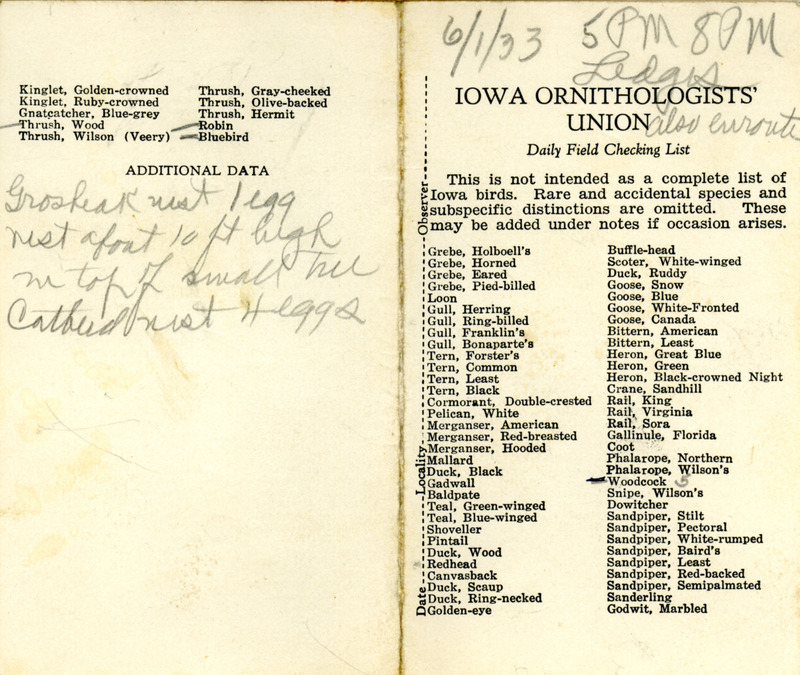 Kinglet, Golden-crowned
Kinglet, Ruby-crowned
Gnatcatcher, Blue-grey
Thrush, Wood
Thrush, Wilson (Veery)
Thrush, Gray-cheeked
Thrush, Olive-backed
Thrush, Hermit
Robin
Bluebird
ADDITIONAL DATA
Grosbeak nest 1 egg
nest about 10 ft high
in top of small tree
Catbird nest 4 eggs
6/1/33 5 PM 8 PM
Ledges
IOWA ORNITHOLOGISTS'
UNION also enroute
Daily Field Checking List
This is not intended as a complete list of
Iowa birds. Rare and accidental species and
subspecific distinctions are omitted. These
may be added under notes if occasion arises.
Date Locality Observer
Grebe, Holboell's
Grebe, Horned
Grebe, Eared
Grebe, Pied-billed
Loon
Gull, Herring
Gull, Ring-billed
Gull, Franklin's
Gull, Bonaparte's
Tern, Forster's
Tern, Common
Tern, Least
Tern, Black
Cormorant, Double-crested
Pelican, White
Merganser, American
Merganser, Red-breasted
Merganser, Hooded
Mallard
Duck, Black
Gadwall
Baldpate
Teal, Green-winged
Teal, Blue-winged
Shoveller
Pintail
Duck, Wood
Redhead
Canvasback
Duck, Scaup
Duck, Ring-necked
Golden-eye
Buffle-head
Scoter, White-winged
Duck, Ruddy
Goose, Snow
Goose, Blue
Goose, White-Fronted
Goose, Canada
Bittern, American
Bittern, Least
Heron, Great Blue
Heron, Green
Heron, Black-crowned Night
Crane, Sandhill
Rail, King
Rail, Virginia
Rail, Sora
Gallinule, Florida
Coot
Phalarope, Northern
Phalarope, Wilson's
Woodcock 5
Snipe, Wilson's
Dowitcher
Sandpiper, Stilt
Sandpiper, Pectoral
Sandpiper, White-rumped
Sandpiper, Baird's
Sandpiper, Least
Sandpiper, Red-backed
Sandpiper, Semipalmated
Sanderling
Godwit, Marbled